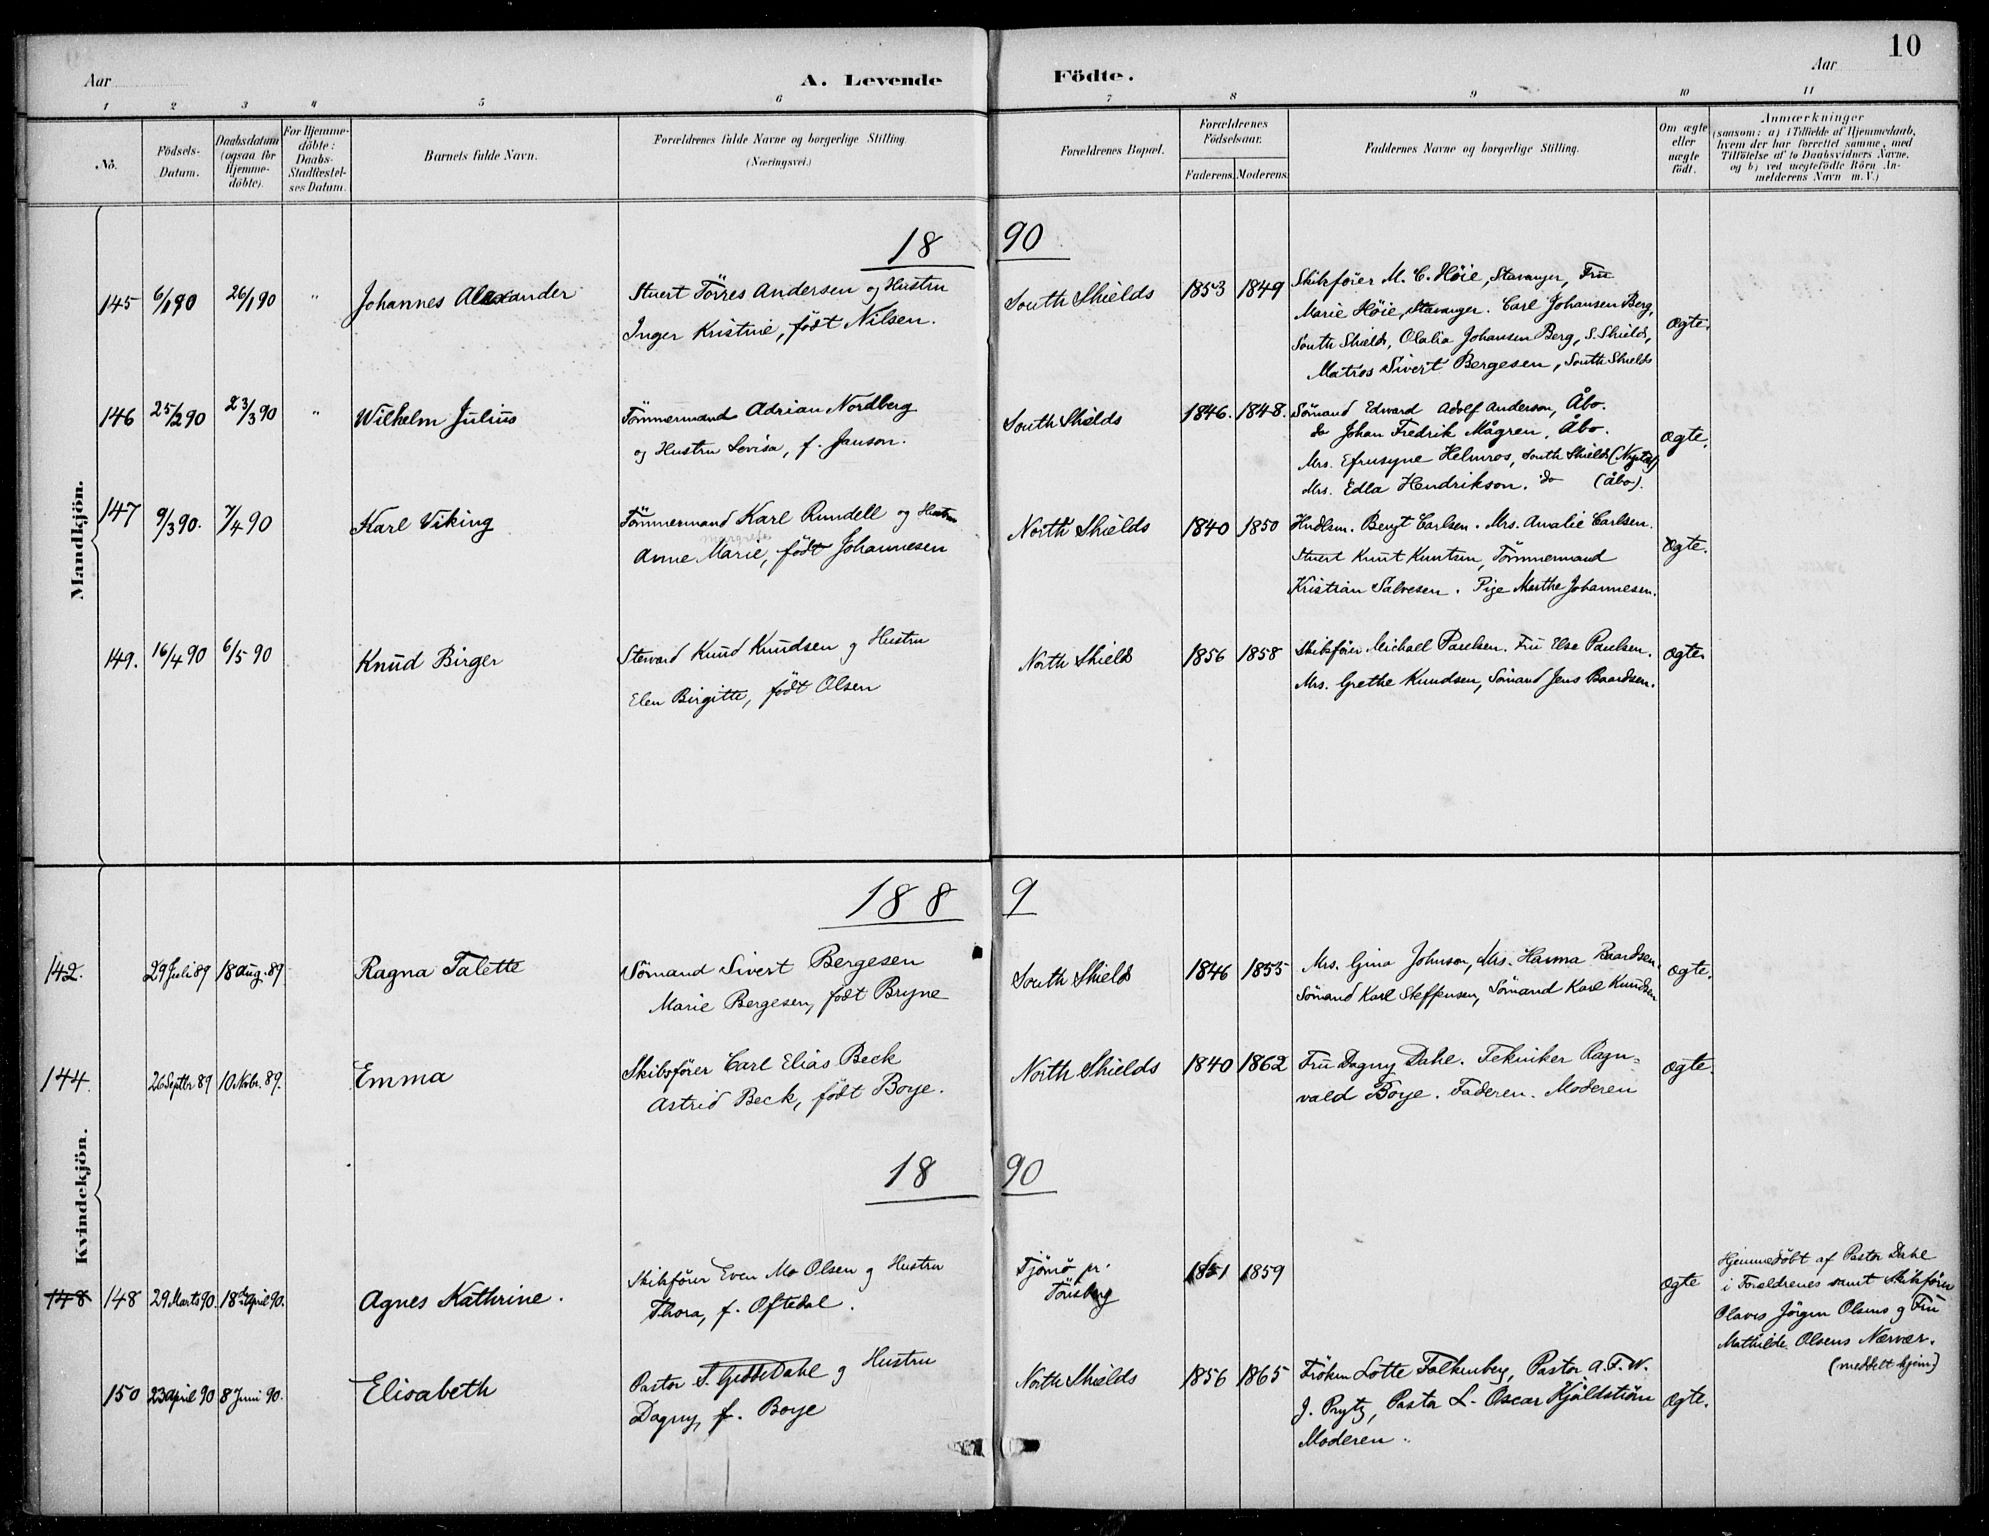 10
Aar
A. Levende Födte.
Aar
1 2 3 4 5 6 7 8 9 10 11
No.
Födsels-Datum.
Daabsdatum (ogsaa for Hjemme-döbte).
For Hjemme-döbte: Daabs-Stadfæstel-ses Datum.
Barnets fulde Navn.
Forældrenes fulde Navne og borgerlige Stilling (Næringsvei.)
Forældrenes Bopæl.
Forældrenes Födselsaar.
Faderens. Moderens.
Faddernes Navne og borgerlige Stilling.
Om ægte eller uægte födt.
Anmærkninger
(saasom: a) i Tilfælde af Hjemmedaab,
hvem der har forrettet samme, med
Tilföielse af to Daabsvidners Navne,
og b) ved uægtefödte Börn An-
melderens Navn m. V.)
Mandkjön.
18 90
145 6/1 90 26/1 90 " Johannes Alexander Stuert Törres Andersen og Hustru South Shields 1853 1849 Skibsförer M. C. Höie, Stavanger, Fru
Inger Kristine, födt Nilsen. Marie Höie, Stavanger. Carl Johansen Berg,
South Shields, Olalia Johansen Berg, S. Shields, Ægte.
Matros Sivert Bergesen, South Shields
146 25/2 90 23/3 90 " Wilhelm Julius Tömmermand Adrian Nordberg South Shields 1846. 1848. Sömand Edward Adolf Anderson, Åbo.
og Hustru Lovisa, f. Janson. do Johan Fredrik Mågren, Åbo. Ægte.
Mrs. Efrusyne Helmros, South Shields (Nystad)
Mrs. Edla Hendrikson. do (Åbo).
147 9/3 90. 7/4 90 Karl Viking Tömmermand Karl Rundell og Hustru North Shields 1840 1850 Hndlsm. Bengt Carlsen. Mrs. Amalie Carlsen.
Margrete
Anne Marie, födt Johannesen Stuert Knut Knutsen, Tömmermand Ægte.
Kristian Salvesen. Pige Marthe Johannesen.
149. 16/4 90 6/5 90 Knud Birger Steward Knud Knudsen og Hustru North Shields 1856 1858 Skibsförer Michael Paulsen. Fru Else Paulsen. Ægte
Elen Birgitte, födt Olsen Mrs. Grethe Knudsen, Sömand Jens Baardsen.
Kvindekjön.
188 9
142. 29 Juli 89 18 Aug. 89. Ragna Talette Sömand Sivert Bergesen South Shields 1846 1855 Mrs. Gina Johnson, Mrs. Hanna Baardsen. Ægte.
Marie Bergesen, födt Bryne Sömand Karl Steffensen, Sömand Karl Knudsen
144. 26 Septbr 89 10 Novbr. 89. Emma Skibsförer Carl Elias Beck North Shields 1840 1862 Fru Dagny Dahl. Tekniker Ragn= Ægte.
Astrid Beck, födt Boye. vald Boye. Faderen. Moderen
18 90
148 148 29 Marts 90. 18de April 90. Agnes Kathrine. Skibsförer Even Mo Olsen og Hustru Tjömö pr. 1851 1859 Ægte Hjemmedöbt af Pastor Dahl
Thora, f. Oftedal. Tönsberg i Forældrenes samt Skibsförer
Olaves Jörgen Olsens og Fru
Mathilde Olsens Nærvær.
(meddelt hjem)
150 23 April 90 8 Juni 90. Elisabeth Pastor S. Gjeddedahl og Hustru North Shields 1856 1865 Fröken Lotte Falkenberg, Pastor A. F. W.
Dagny, f. Boye J. Prytz, Pastor L. Oscar Kjäldström Ægte.
Moderen.